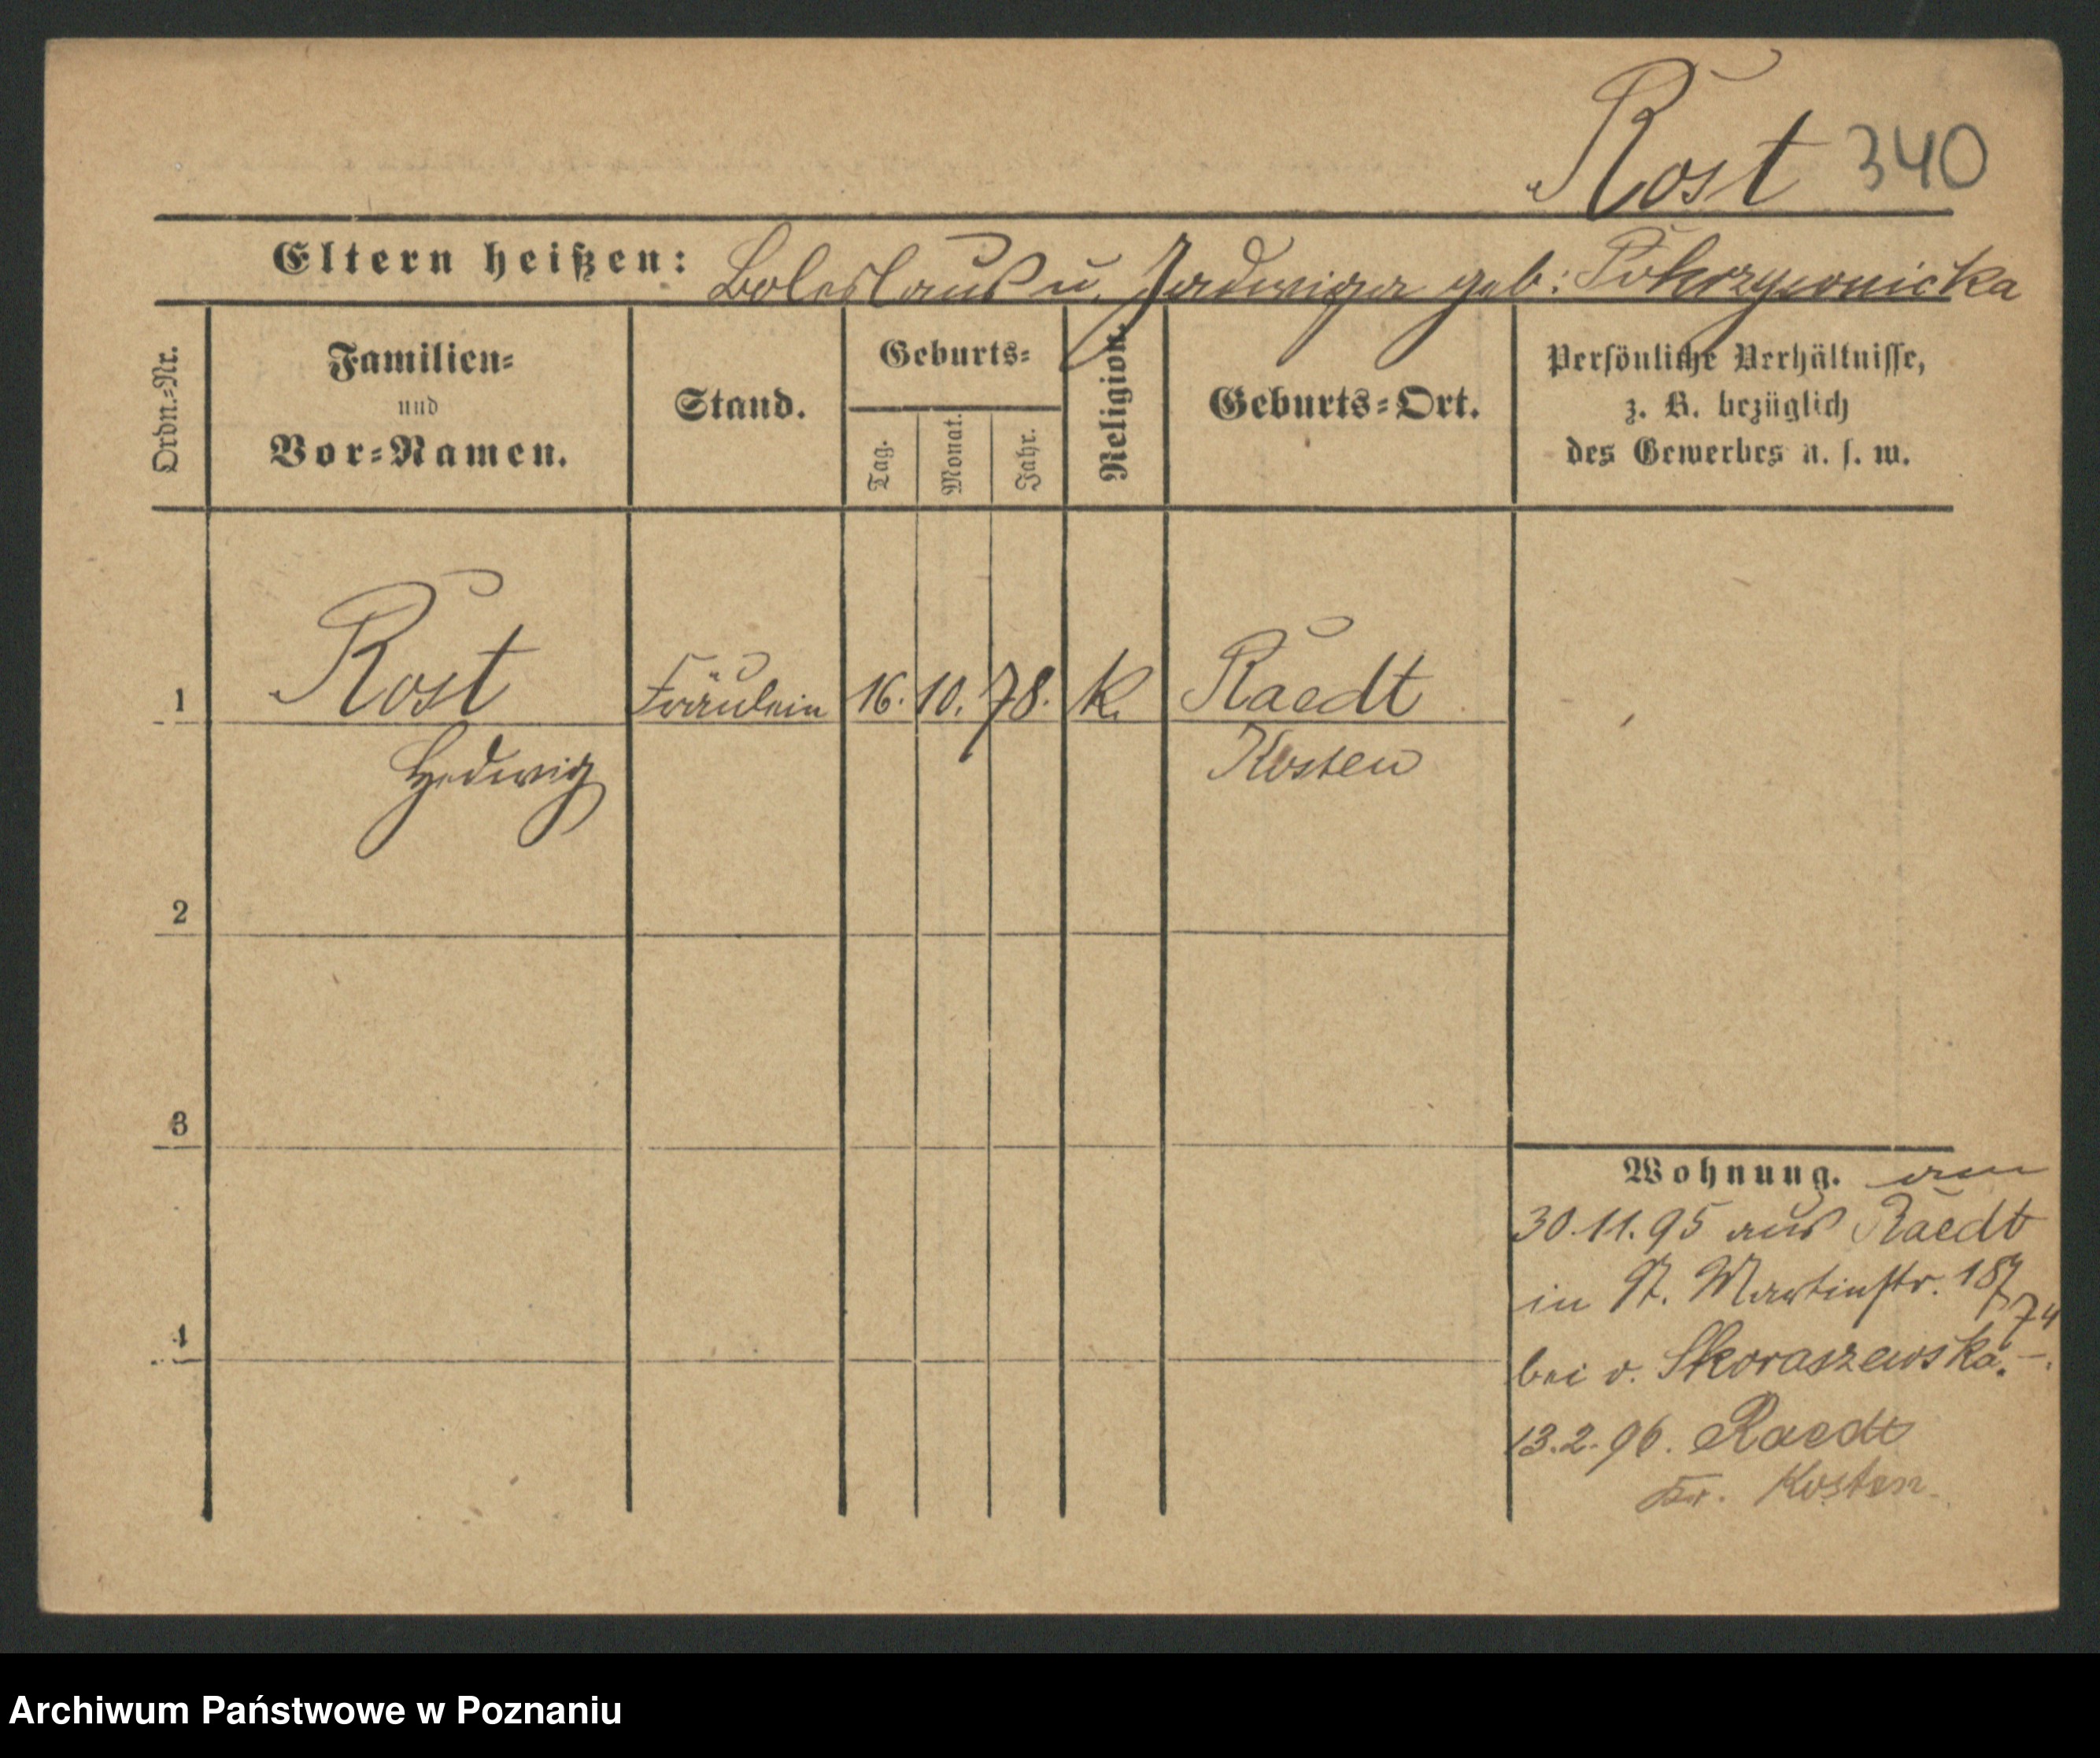 Rost 340
Eltern heißen: Boleslaus u. Jadwiga geb: Pokrzywnicka
Ordn.=Nr.
Familien=
und
Vor=Namen.
Stand.
Geburts=
Tag.
Monat.
Jahr.
Religion.
Geburts=Ort.
Persönliche Verhältnisse,
z. B. bezüglich
des Gewerbes u. s. w.
1 Rost Fräulein 16. 10. 78. k. Raedt
Hedwig Kosten
2
3
4
Wohnung. am
30.11.95 aus Raedt
in St. Martinstr. 18
74
bei v. Skoraszewska. -.
13.2.96. Raedt
Kr. Kosten
Archiwum Państwowe w Poznaniu